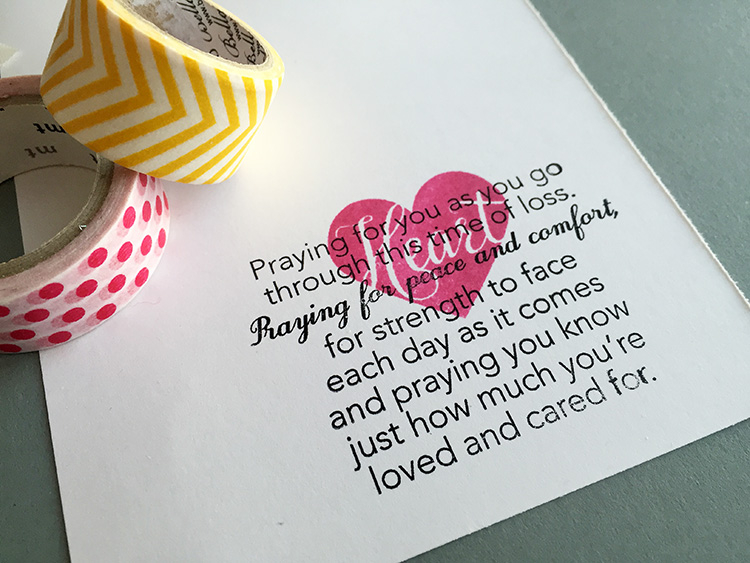 Bella
Bella
mt
mt
Praying for you as you go
through this time of loss.
Heart
Praying for peace and comfort,
for strength to face
each day as it comes
and praying you know
just how much you're
loved and cared for.